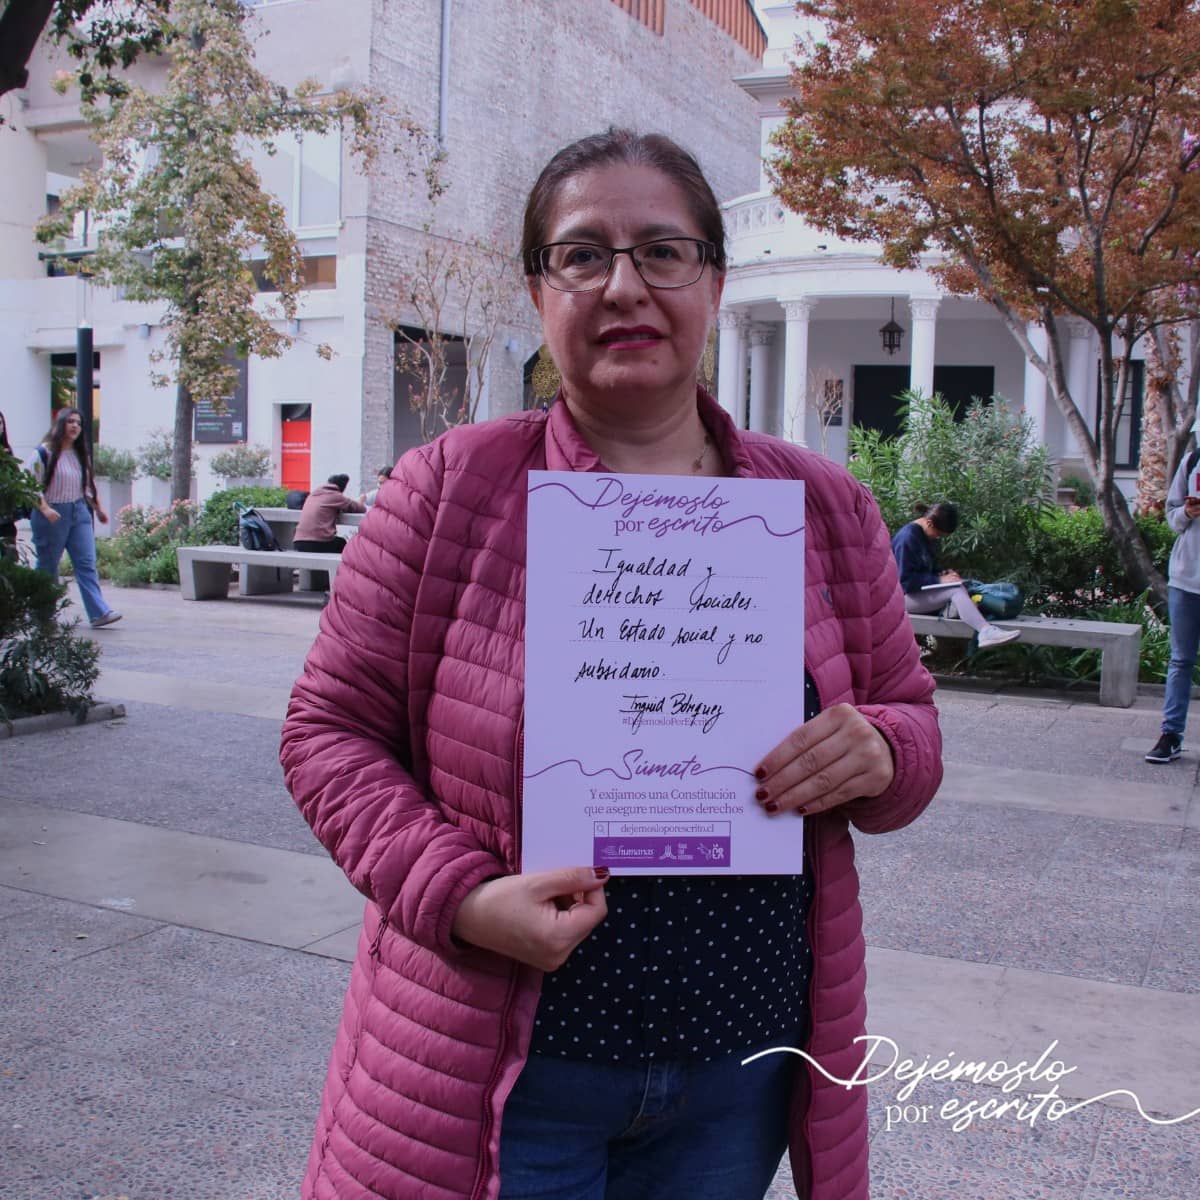 Dejémoslo
por escrito
Igualdad y
derechos sociales.
Un Estado social y no
subsidario.
Ingrid Bórquez
#DejemosloPorEscrito
Súmate
Y exijamos una Constitución
que asegure nuestros derechos
dejemosloporescrito.cl
humanas
Dejémoslo
por escrito